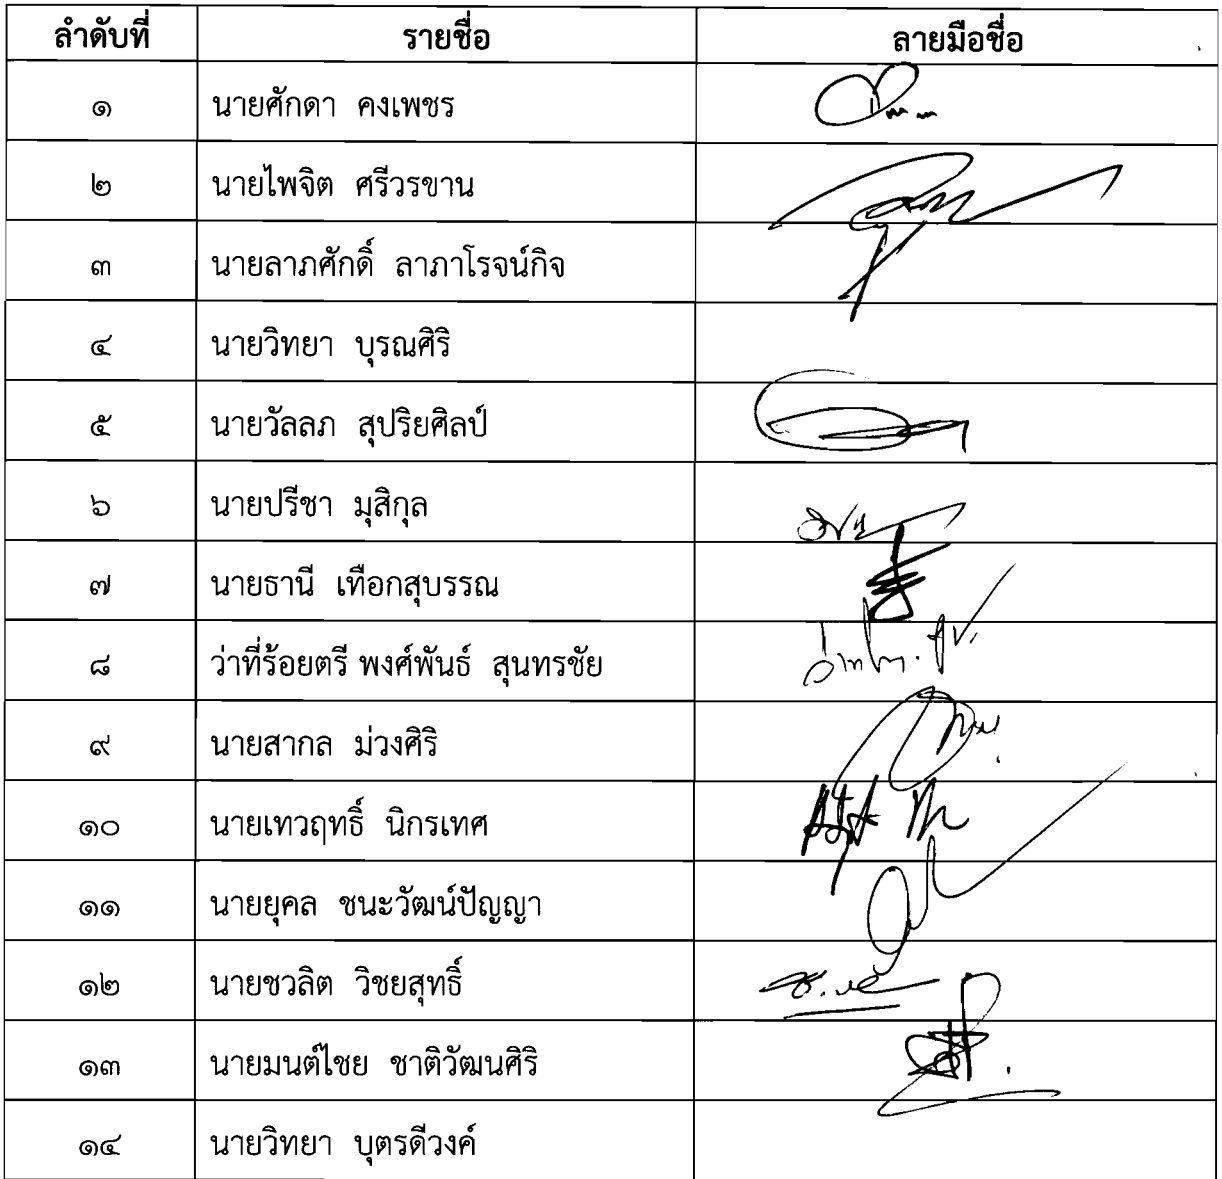 ลำดับที่ รายชื่อ ลายมือชื่อ
๑ นายศักดา คงเพชร
๒ นายไพจิต ศรีวรขาน
๓ นายลาภศักดิ์ ลาภาโรจน์กิจ
๔ นายวิทยา บุรณศิริ
๕ นายวัลลภ สุปริยศิลป์
๖ นายปรีชา มุสิกุล
๗ นายธานี เทือกสุบรรณ
๘ ว่าที่ร้อยตรี พงศ์พันธ์ สุนทรชัย
๙ นายสากล ม่วงศิริ
๑๐ นายเทวฤทธิ์ นิกรเทศ
๑๑ นายยุคล ชนะวัฒน์ปัญญา
๑๒ นายชวลิต วิชยสุทธิ์
๑๓ นายมนต์ไชย ชาติวัฒนศิริ
๑๔ นายวิทยา บุตรดีวงค์